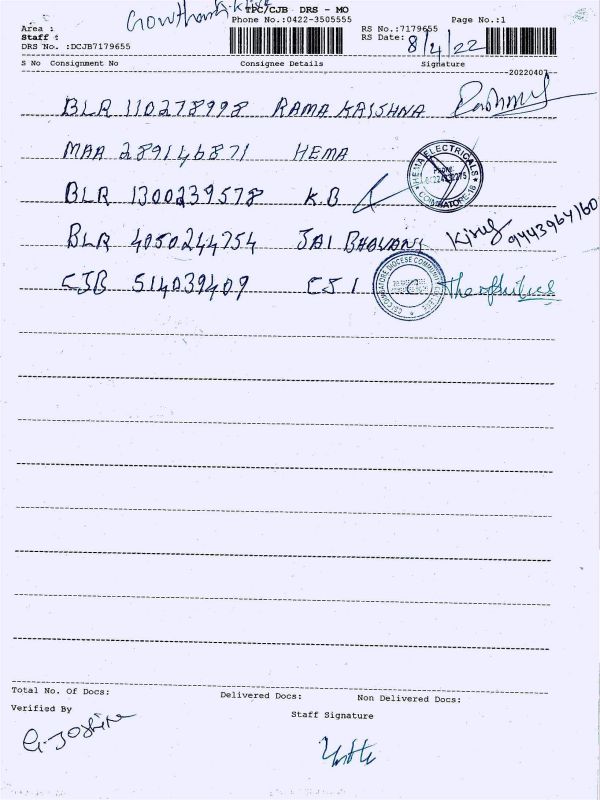 TPC/CJB DRS - MO
Area : Phone No.:0422-3505555 Page No.:1
Staff : RS No.:7179655
DRS No. :DCJB7179655 RS Date: 8/4/22
S No Consignment No Consignee Details Signature
20220407
BLR 110278998 RAMA KRISHNA
MAA 289146871 HEMA HEMA ELECTRICALS COIMBATORE-18
BLR 1300239578 K.B
BLR 4050244754 JAI BHAVANI 9443964160
CJB 514039409 CSI CSI COIMBATORE DIOCESE COMMUNITY
Total No. Of Docs: Delivered Docs: Non Delivered Docs:
Verified By Staff Signature